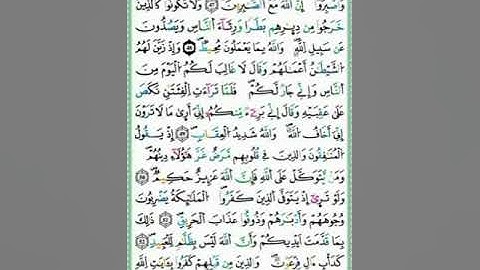 وَاصْبِرُوٓا۟ ۚ إِنَّ اللَّهَ مَعَ الصَّـٰبِرِينَ ٤٦ وَلَا تَكُونُوا۟ كَالَّذِينَ
خَرَجُوا۟ مِن دِيَـٰرِهِم بَطَرًا وَرِئَآءَ النَّاسِ وَيَصُدُّونَ
عَن سَبِيلِ اللَّهِ ۚ وَاللَّهُ بِمَا يَعْمَلُونَ مُحِيطٌ ٤٧ وَإِذْ زَيَّنَ لَهُمُ
الشَّيْطَـٰنُ أَعْمَـٰلَهُمْ وَقَالَ لَا غَالِبَ لَكُمُ الْيَوْمَ مِنَ
النَّاسِ وَإِنِّى جَارٌ لَّكُمْ ۖ فَلَمَّا تَرَآءَتِ الْفِئَتَانِ نَكَصَ
عَلَىٰ عَقِبَيْهِ وَقَالَ إِنِّى بَرِىٓءٌ مِّنكُمْ إِنِّىٓ أَرَىٰ مَا لَا تَرَوْنَ
إِنِّىٓ أَخَافُ اللَّهَ ۚ وَاللَّهُ شَدِيدُ الْعِقَابِ ٤٨ إِذْ يَقُولُ
الْمُنَـٰفِقُونَ وَالَّذِينَ فِى قُلُوبِهِم مَّرَضٌ غَرَّ هَـٰٓؤُلَآءِ دِينُهُمْ ۗ
وَمَن يَتَوَكَّلْ عَلَى اللَّهِ فَإِنَّ اللَّهَ عَزِيزٌ حَكِيمٌ ٤٩
وَلَوْ تَرَىٰٓ إِذْ يَتَوَفَّى الَّذِينَ كَفَرُوا۟ ۙ الْمَلَـٰٓئِكَةُ يَضْرِبُونَ
وُجُوهَهُمْ وَأَدْبَـٰرَهُمْ وَذُوقُوا۟ عَذَابَ الْحَرِيقِ ٥٠ ذَٰلِكَ
بِمَا قَدَّمَتْ أَيْدِيكُمْ وَأَنَّ اللَّهَ لَيْسَ بِظَلَّـٰمٍ لِّلْعَبِيدِ ٥١
كَدَأْبِ ءَالِ فِرْعَوْنَ ۙ وَالَّذِينَ مِن قَبْلِهِمْ ۚ كَفَرُوا۟ بِـَٔايَـٰتِ اللَّهِ